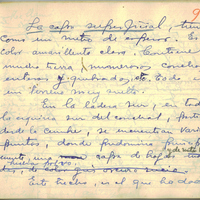 9
La capa superficial, tiene
como un metro de espesor. Es
color amarillento claro. Contiene
mucha tierra y numerosos conchas
enteras y quebradas, etc. todo
un terreno muy suelto.
En la ladera sur, en todo
la esquina sur del conchal,
desde la cumbre, se encuentran varios
puntos, donde predomina
una capa de
Este hecho, es el que ha dado